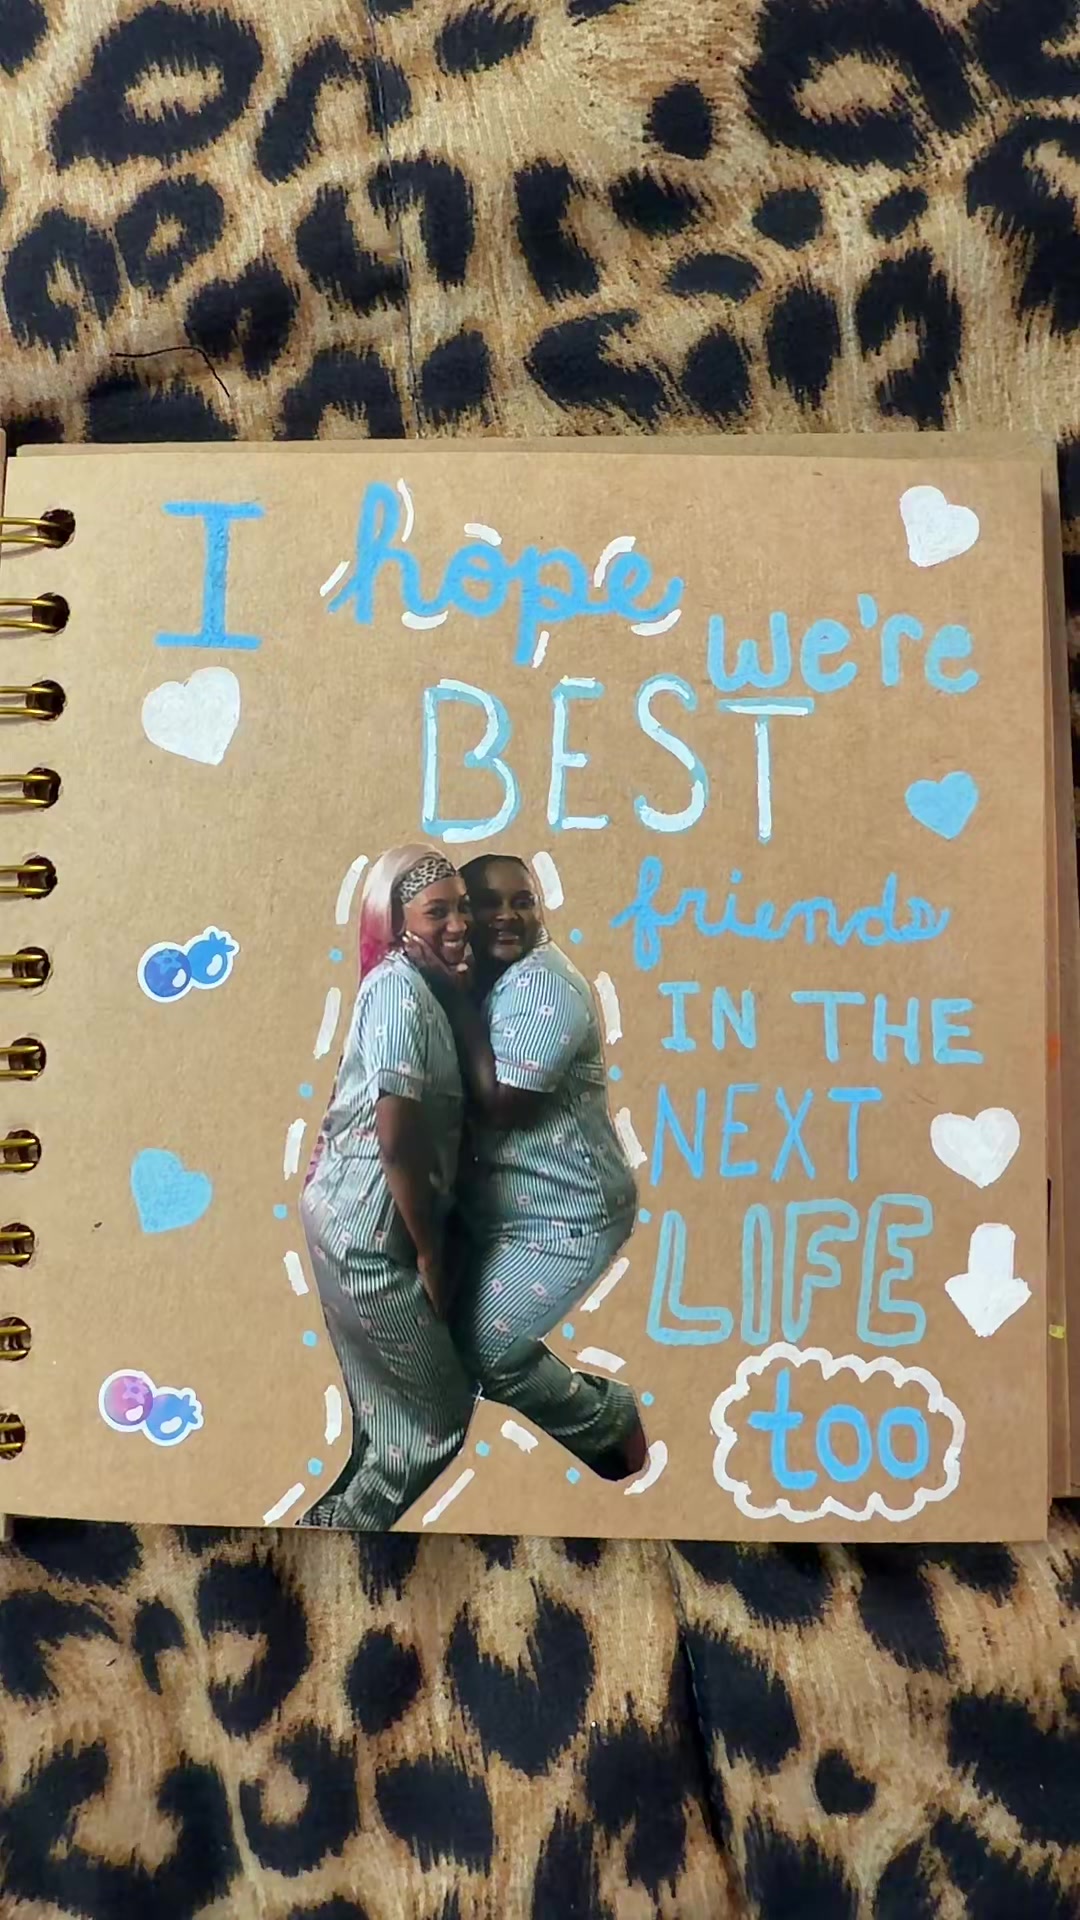 I hope
we're
BEST
friends
IN THE
NEXT
LIFE
too